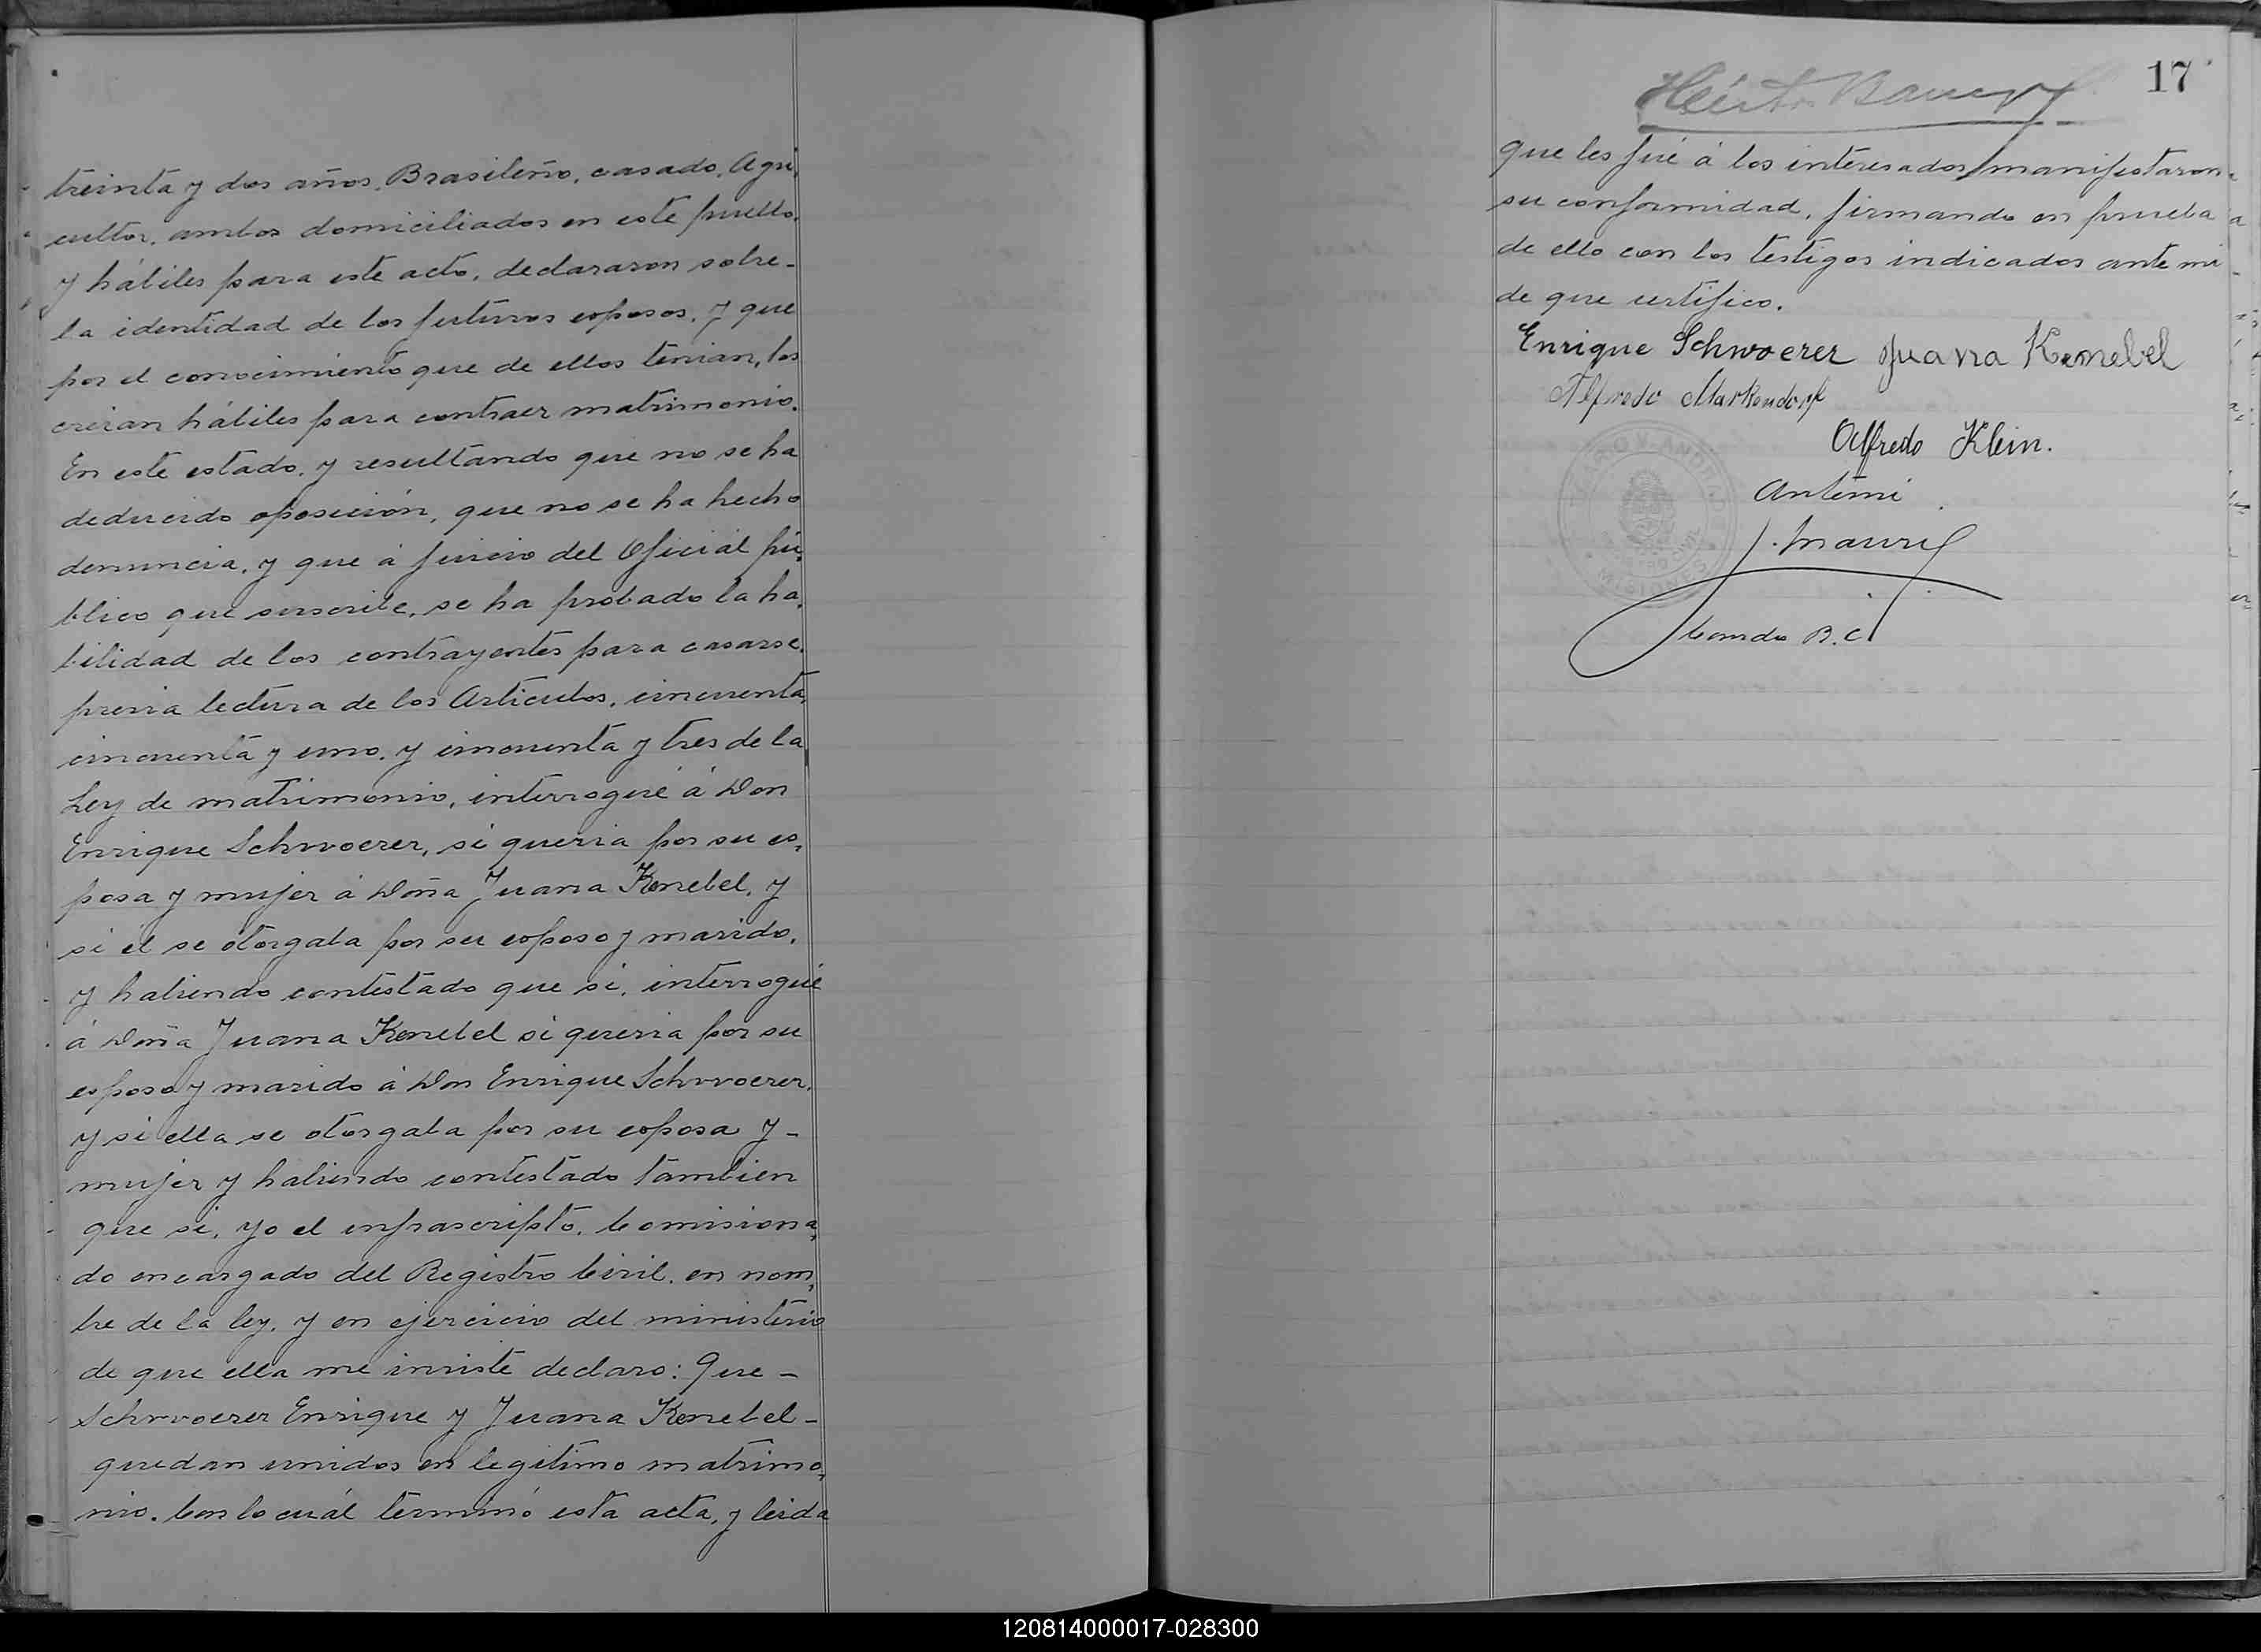 treinta y dos años, Brasileño, casado, Agri,
cultor, ambos domiciliados en este pueblo,
y hábiles para este acto, declararon sobre-
la identidad de los futuros esposos, y que
por el conocimiento que de ellos tenian, los
creian hábiles para contraer matrimonio.
En este estado, y resultando que no se ha
deducido oposición, que no se ha hecho
denuncia, y que á juicio del Oficial pú,
blico que suscribe, se ha probado la ha,
bilidad de los contrayentes para casarse,
previa lectura de los Artículos, cincuenta,
cincuenta y uno, y cincuenta y tres de la
Ley de matrimonio, interrogué á Don
Enrique Schwoerer, si queria por su es,
posa y mujer á Doña Juana Kenebel, y
si él se otorgaba por su esposo y marido,
y habiendo contestado que si, interrogué
á Doña Juana Kenebel si queria por su
esposo y marido á Don Enrique Schwoerer,
y si ella se otorgaba por su esposa y -
mujer y habiendo contestado tambien
que si, yo el infrascripto, Comisiona,
do encargado del Registro Civil, en nom,
bre de la ley, y en ejercicio del ministerio
de que ella me inviste declaro: Que -
Schwoerer Enrique y Juana Kenebel -
quedan unidos en legitimo matrimo,
nio. Con lo cuál terminó esta acta, y leida
17
Héctor
que les fué á los interesados manifestaron
su conformidad, firmando en prueba
de ello con los testigos indicados ante mi
de que certifico.
Enrique Schwoerer Juana Kenebel
Alfredo Markendorf
Alfredo Klein.
Antemi
J. Mauri
Comdo R. C.
120814000017-028300